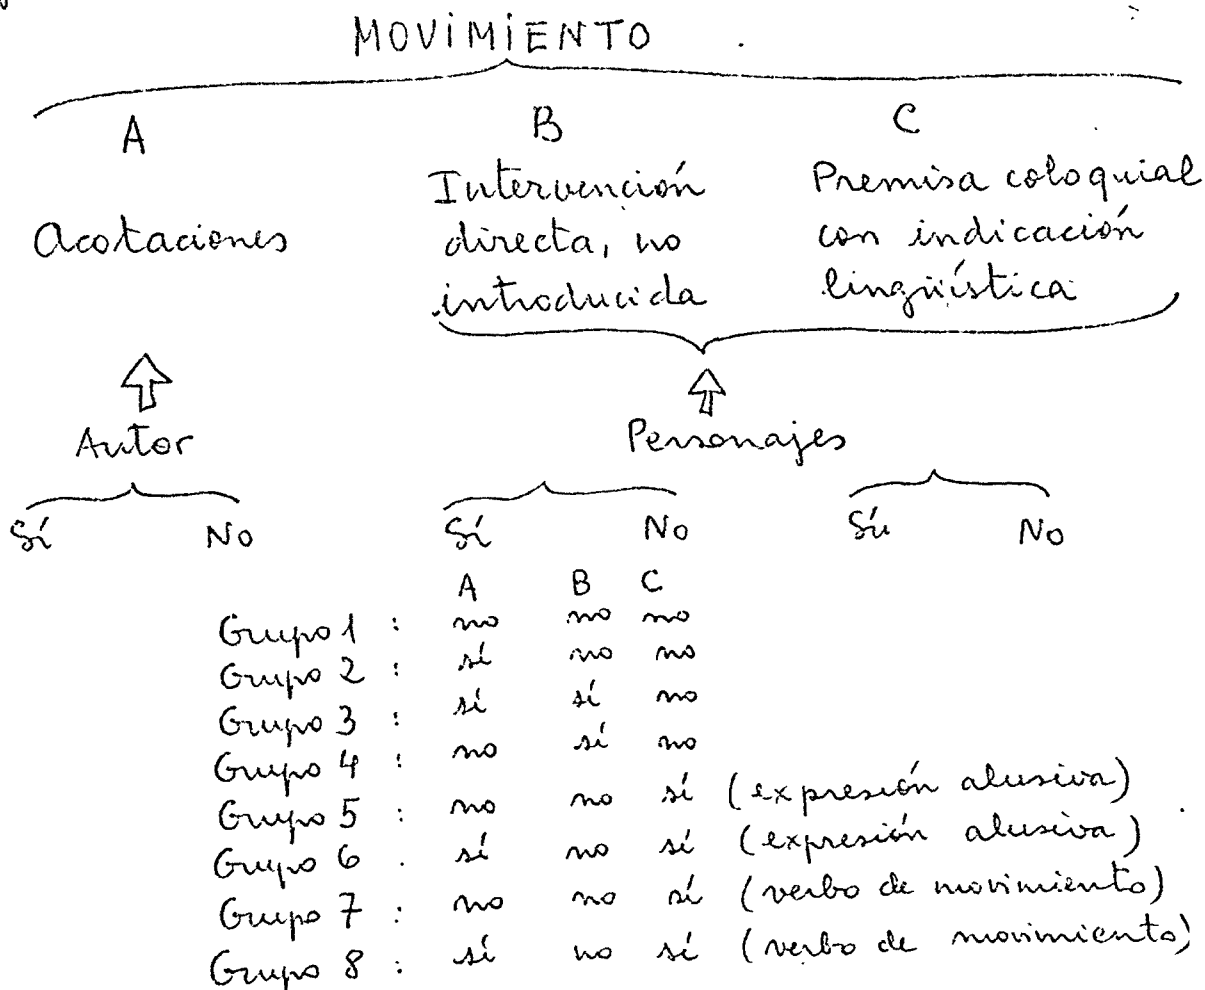 MOVIMIENTO
A B C
Intervención Premisa coloquial
Acotaciones directa, no con indicación
introducida lingüística
Autor Personajes
Sí No Sí No Sí No
A B C
Grupo 1 : no no no
Grupo 2 : sí no no
Grupo 3 : sí sí no
Grupo 4 : no sí no
Grupo 5 : no no sí (expresión alusiva)
Grupo 6 . sí no sí (expresión alusiva)
Grupo 7 : no no sí (verbo de movimiento)
Grupo 8 : sí no sí (verbo de movimiento)